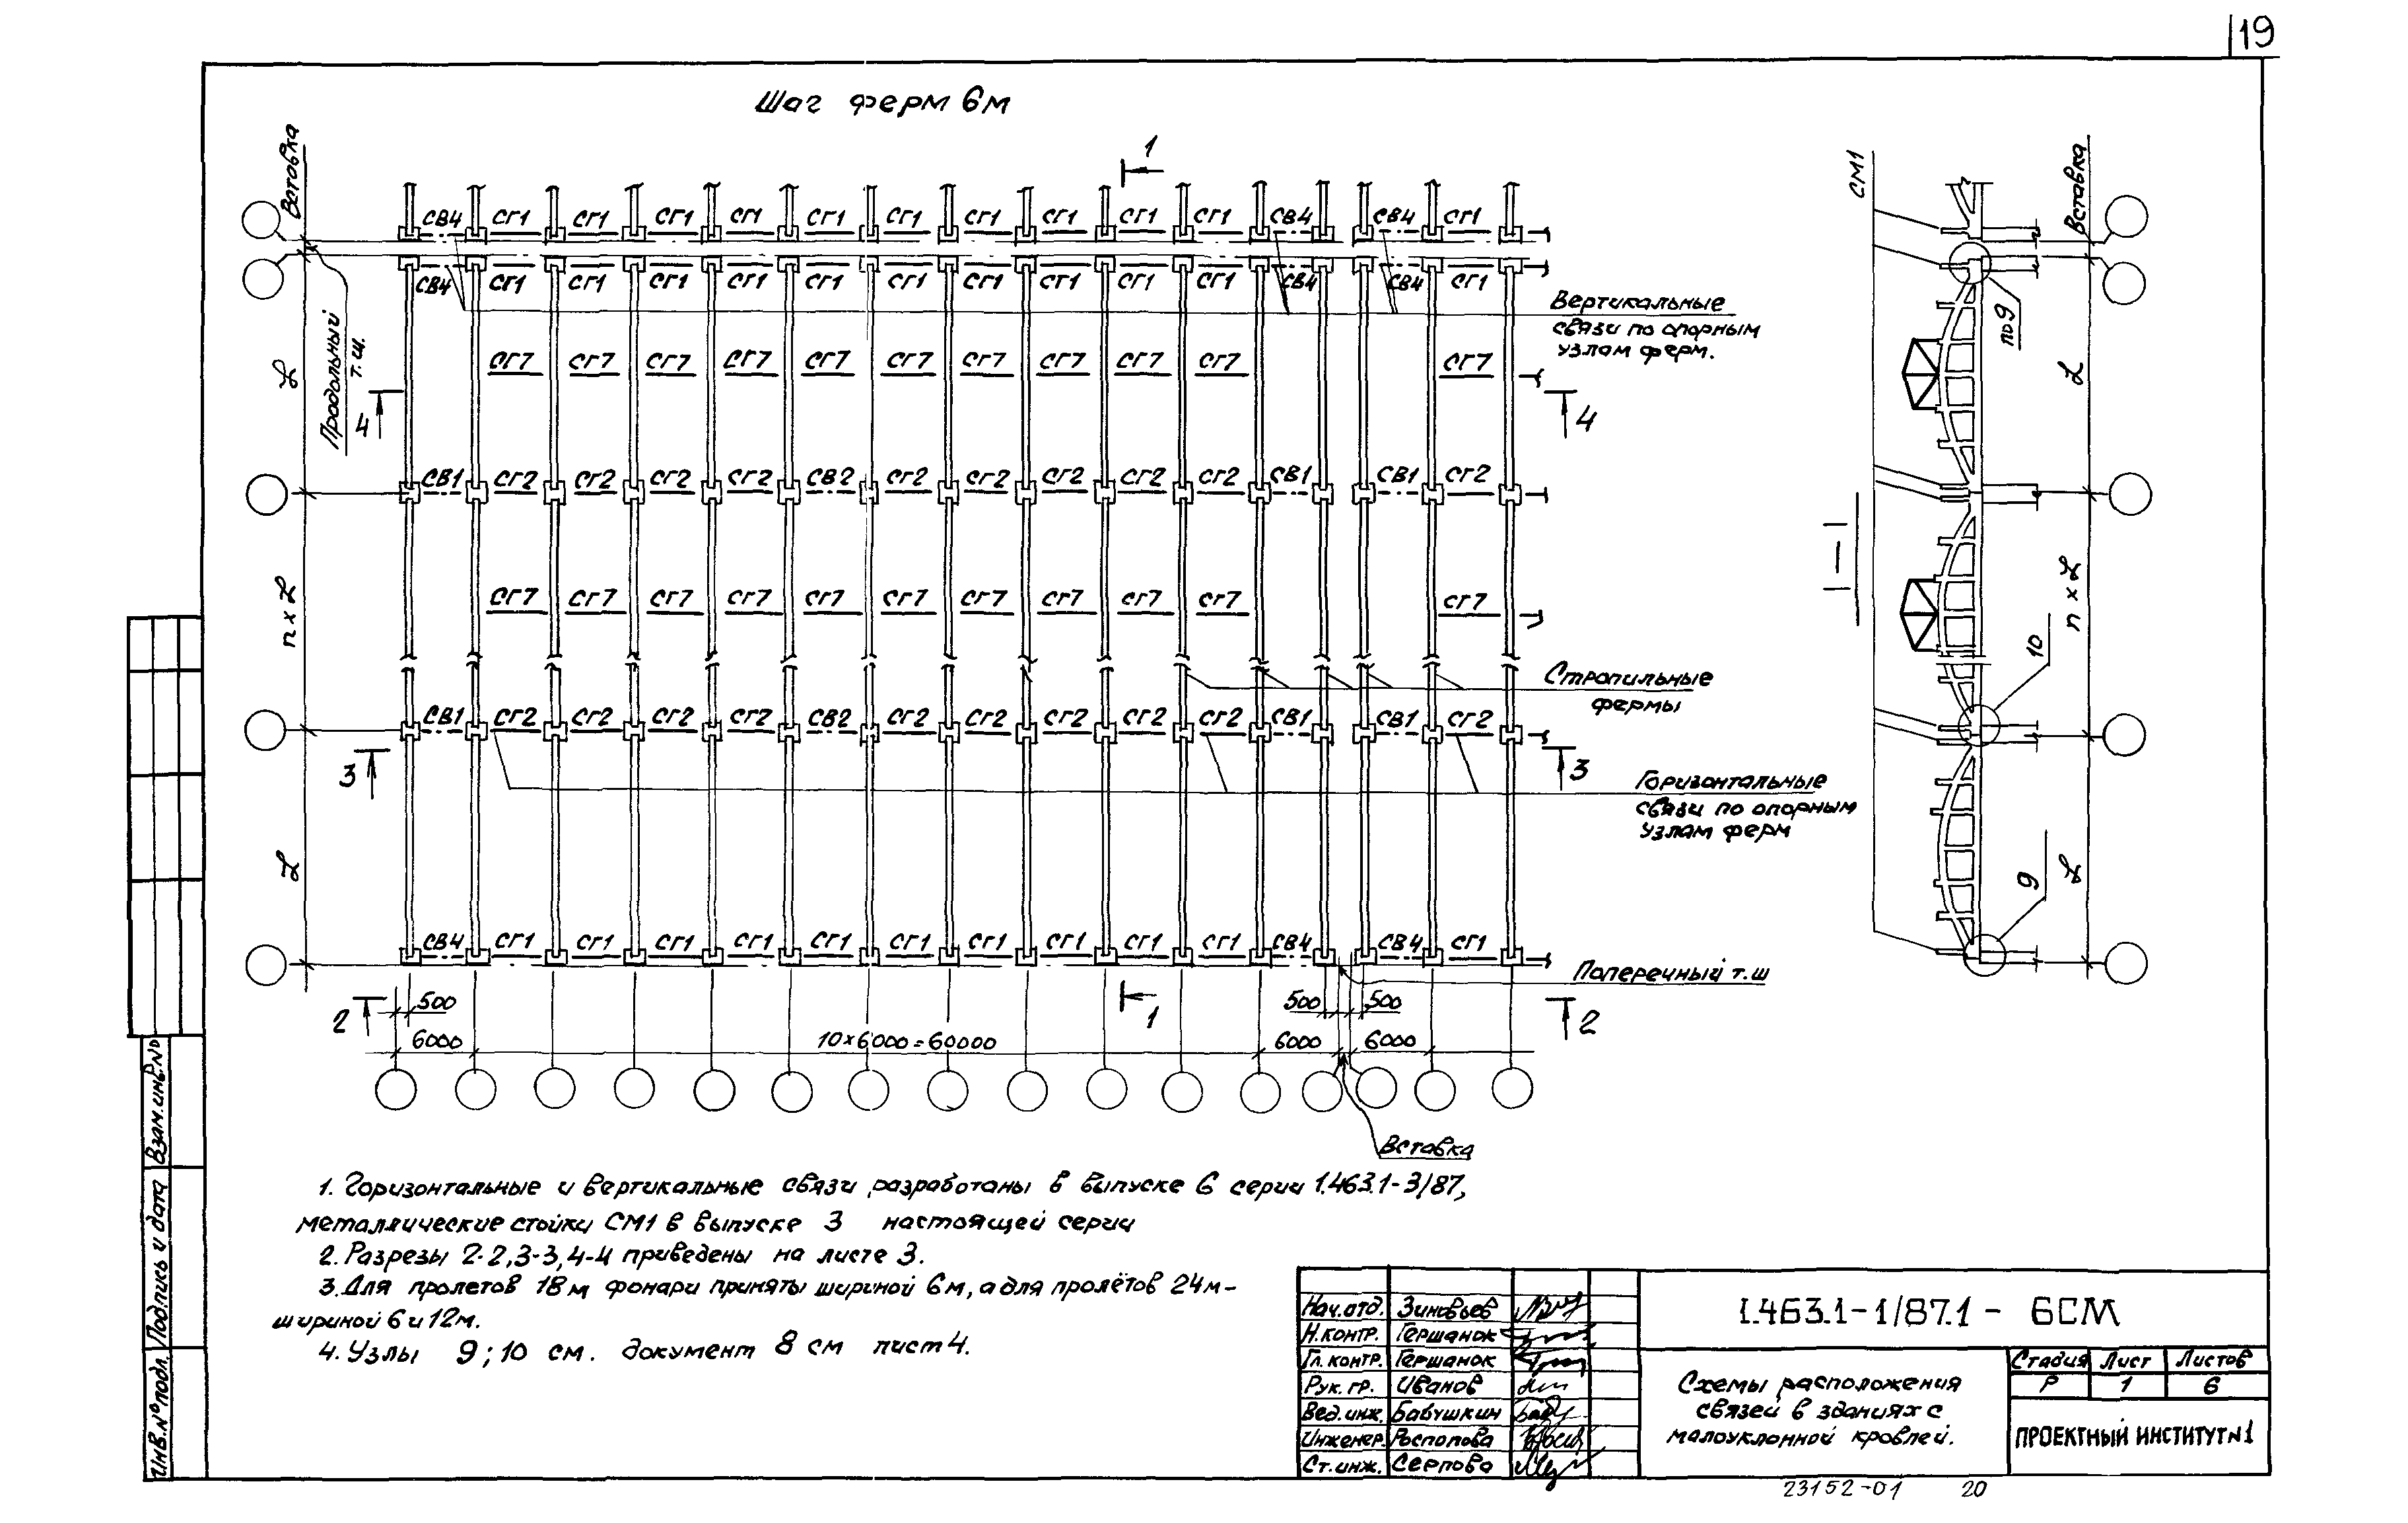 19
Шаг ферм 6м
1
Вставка
СВ4 СГ1 СГ1 СГ1 СГ1 СГ1 СГ1 СГ1 СГ1 СГ1 СГ1 СВ4 СВ4 СГ1
СВ4 СГ1 СГ1 СГ1 СГ1 СГ1 СГ1 СГ1 СГ1 СГ1 СГ1 СВ4 СВ4 СГ1
Вертикальные
связи по опорным
узлам ферм.
Продольный
т.ш.
СГ7 СГ7 СГ7 СГ7 СГ7 СГ7 СГ7 СГ7 СГ7 СГ7 СГ7
L
4 4
СВ1 СГ2 СГ2 СГ2 СГ2 СВ2 СГ2 СГ2 СГ2 СГ2 СГ2 СВ1 СВ1 СГ2
n x L
СГ7 СГ7 СГ7 СГ7 СГ7 СГ7 СГ7 СГ7 СГ7 СГ7 СГ7
Стропильные
фермы
СВ1 СГ2 СГ2 СГ2 СГ2 СВ2 СГ2 СГ2 СГ2 СГ2 СГ2 СВ1 СВ1 СГ2
3 3
Горизонтальные
связи по опорным
узлам ферм
L
СВ4 СГ1 СГ1 СГ1 СГ1 СГ1 СГ1 СГ1 СГ1 СГ1 СГ1 СВ4 СВ4 СГ1
Поперечный т.ш
2 500 1 500 500 2
6000 10х6000=60000 6000 6000
Вставка
СМ1
Вставка
по 9
L
1-1
10
n x L
9
L
1. Горизонтальные и вертикальные связи разработаны в выпуске 6 серии 1.463.1-3/87,
металлические стойки СМ1 в выпуске 3 настоящей серии
2. Разрезы 2-2,3-3,4-4 приведены на листе 3.
3. Для пролетов 18м фонари приняты шириной 6м, а для пролётов 24м-
шириной 6 и 12м.
4. Узлы 9;10 см. документ 8 см лист 4.
Взам.инв.№
Подпись и дата
Инв.№ подл.
Нач.отд. Зиновьев
Н.контр. Гершанок
Гл.контр. Гершанок
Рук.гр. Иванов
Вед.инж. Бабушкин
Инженер. Роспопова
Ст.инж. Серпова
1.463.1-1/87.1 - 6СМ
Схемы расположения
связей в зданиях с
малоуклонной кровлей.
Стадия Лист Листов
Р 1 6
ПРОЕКТНЫЙ ИНСТИТУТ №1
23152-01 20